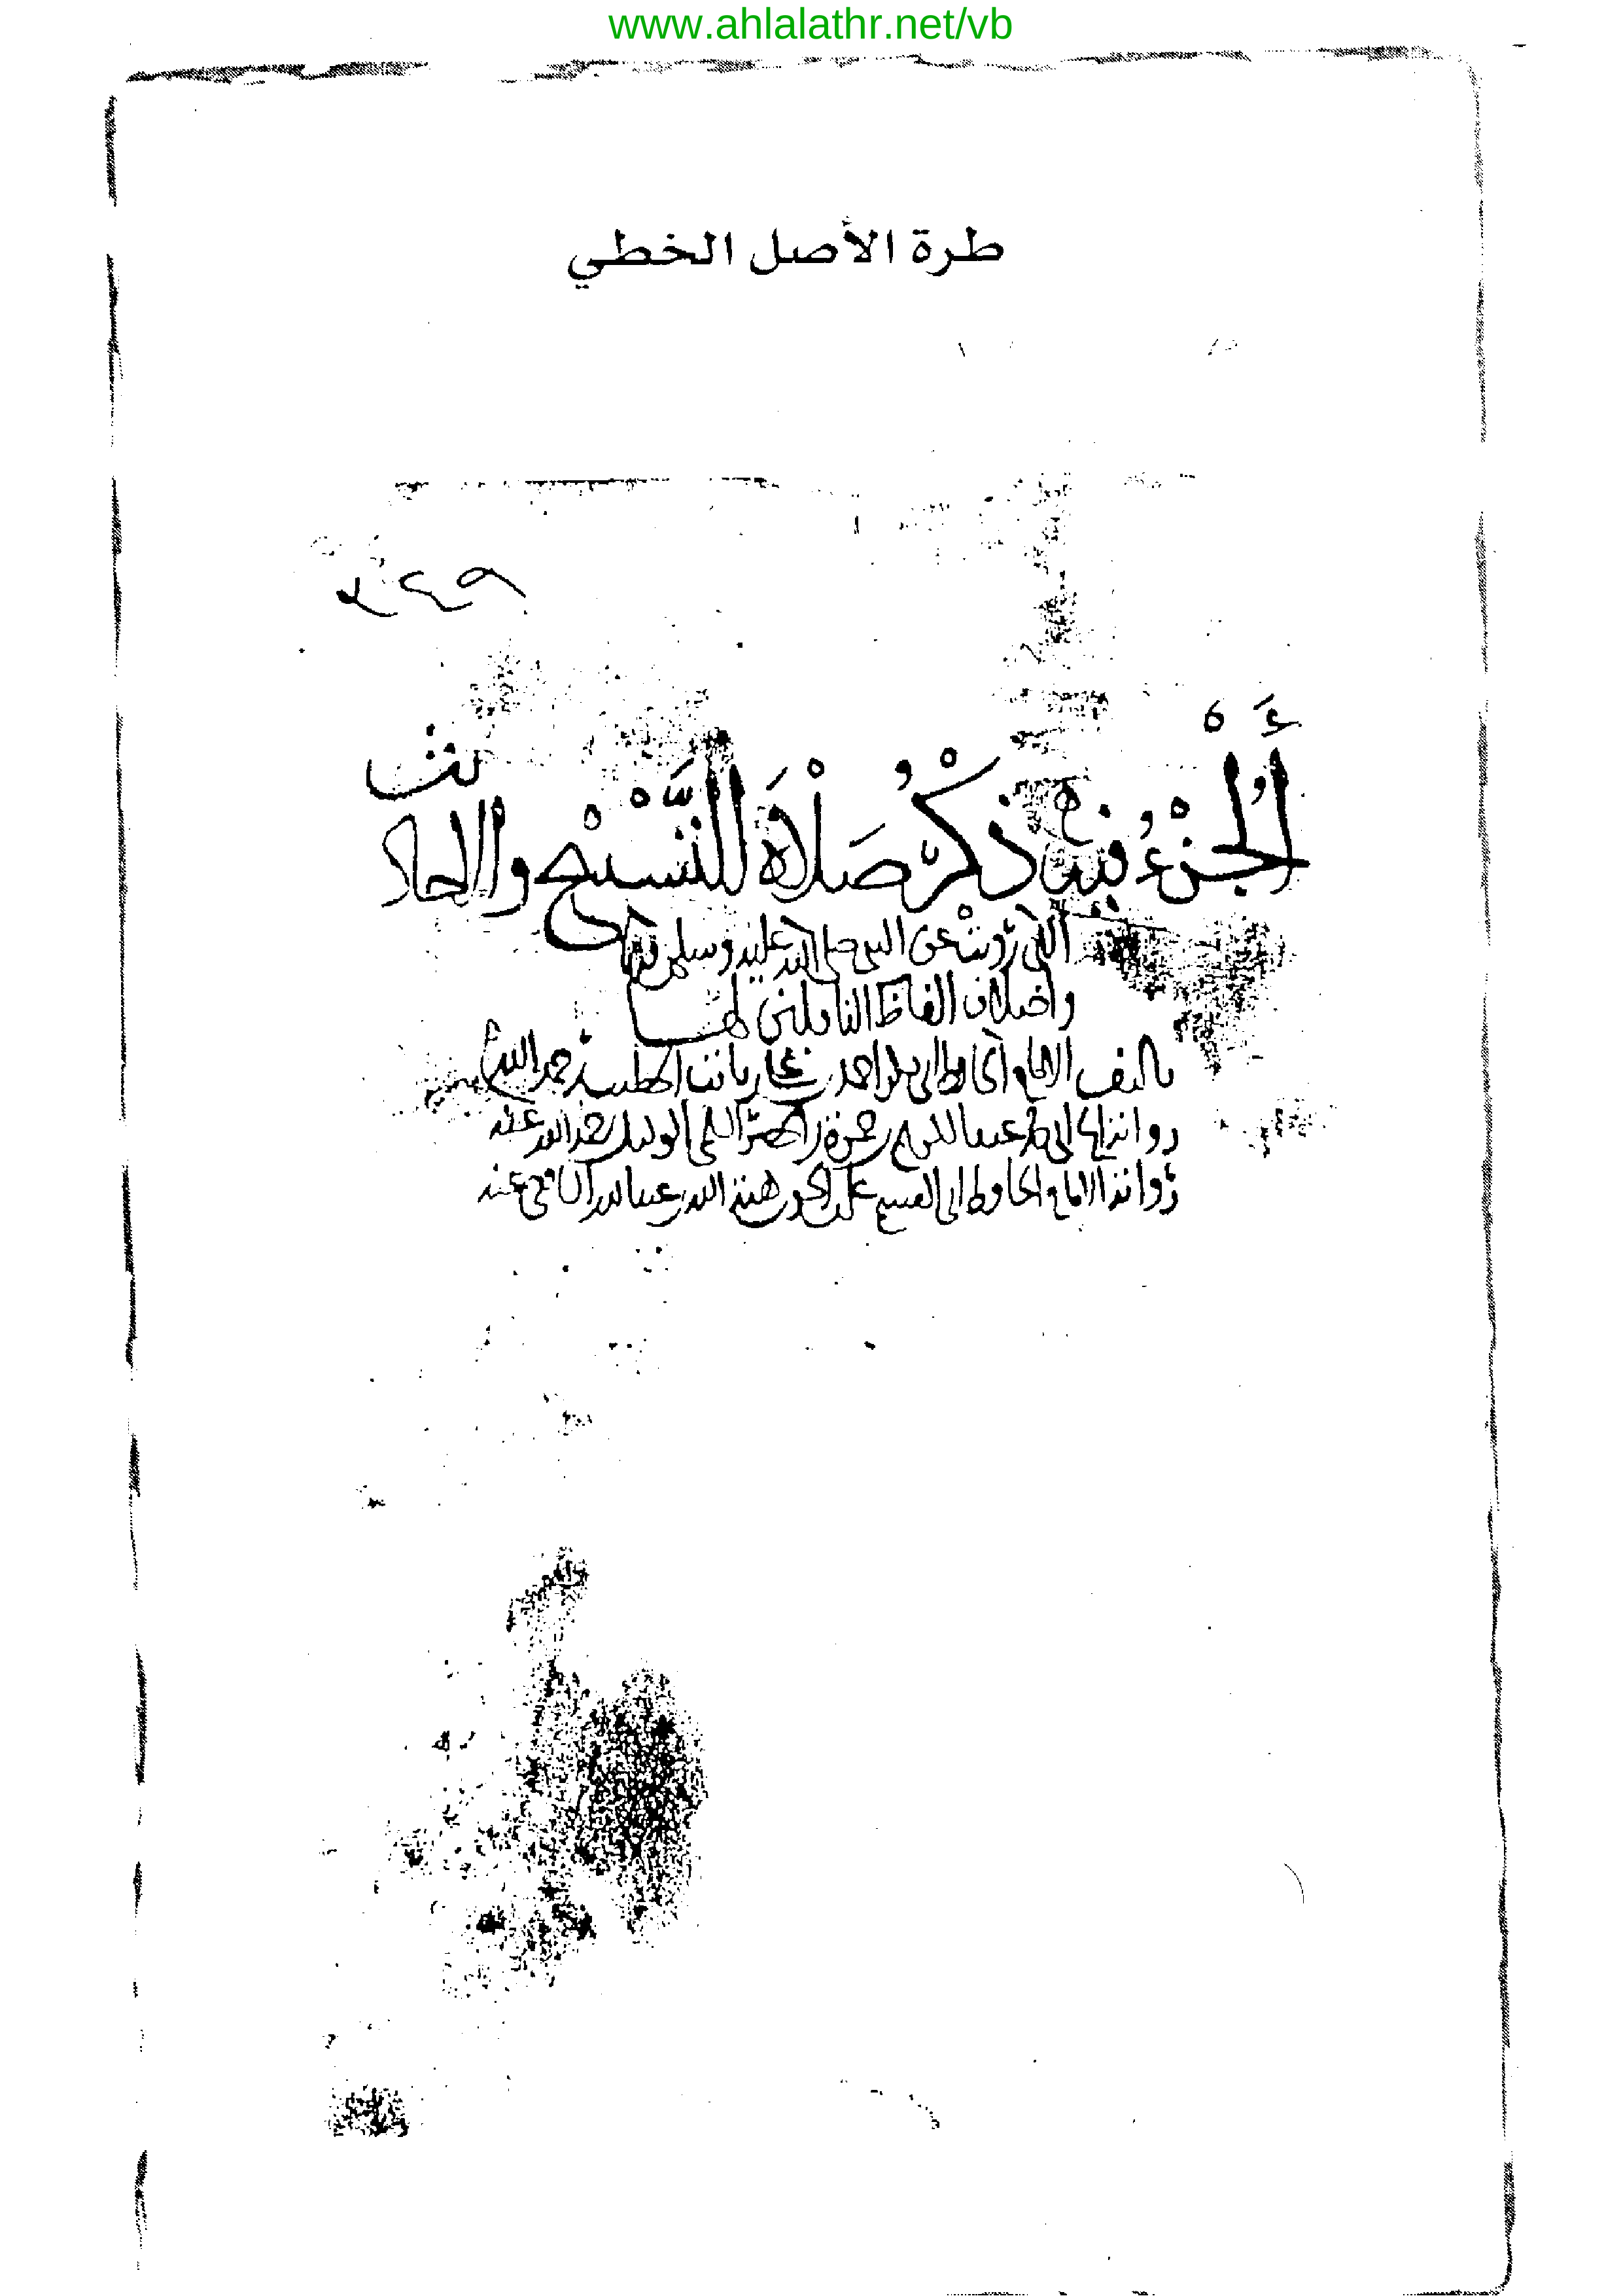 www.ahlalathr.net/vb
طرة الأصل الخطي
الْجُزْءُ فِيهِ ذِكْرُ صَلَاةِ التَّسْبِيْحِ والاحاديث
التي رُويتْ عن النبي صلى الله عليه وسلم فيها
واختلاف الفاظ الناقلين لها
تاليف الامام الحافظ ابي بكر احمد بن علي بن ثابت الخطيب رحمه الله
رواية ابي محمد عبد الكريم بن حمزة بن الخضر السلمي الوكيل رحمه الله عنه
رواية الامام الحافظ ابي القسم علي بن الحسن بن هبة الله بن عبد الله الشافعي عنه